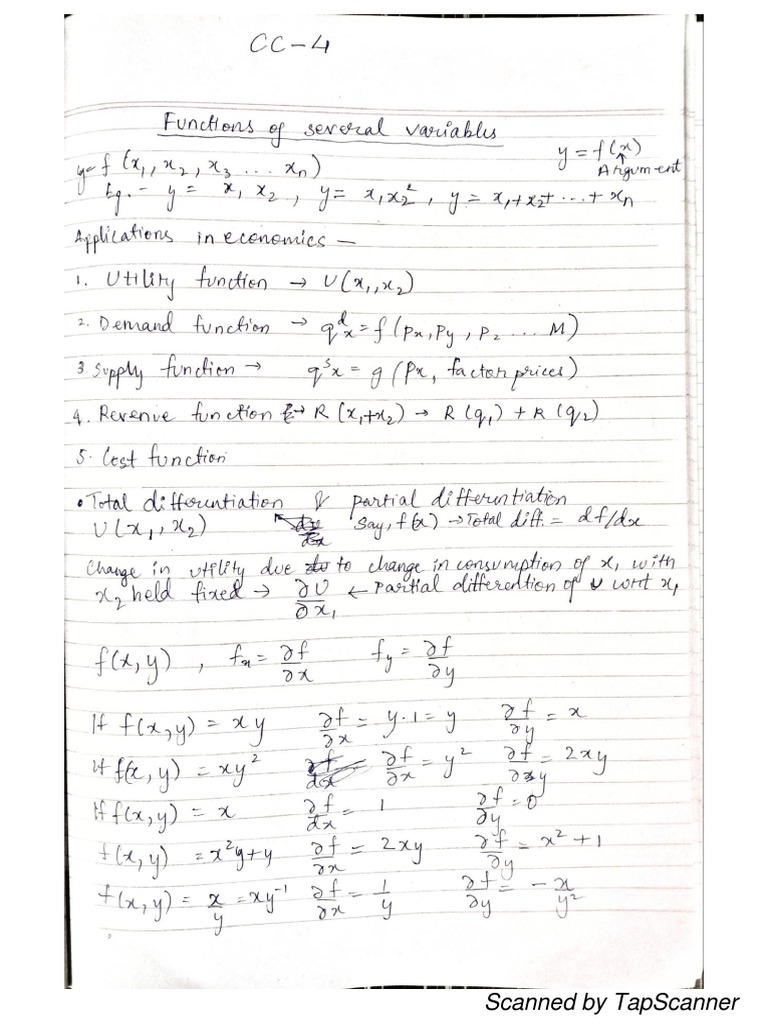 CC-4
Functions of several variables
y = f(x)
↑
Argument
y = f (x₁, x₂, x₃ ... xₙ)
Eg. - y = x₁ x₂ , y = x₁x₂² , y = x₁+x₂+ ... + xₙ
Applications in economics —
1. Utility function → U(x₁, x₂)
2. Demand function → qᵈₓ = f (Px, Py, Pz ... M)
3 Supply function → qˢx = g (Px, factor prices)
4. Revenue function → R (x₁+x₂) → R (q₁) + R (q₂)
5. Cost function
• Total differentiation & partial differentiation
U(x₁, x₂) Say, f(x) → Total diff. = df/dx
Change in utility due to change in consumption of x₁ with
x₂ held fixed → ∂U/∂x₁ ← Partial differention of U wrt x₁
f(x, y) , fx = ∂f/∂x fy = ∂f/∂y
If f(x, y) = xy ∂f/∂x = y·1 = y ∂f/∂y = x
If f(x, y) = xy² ∂f/∂x = y² ∂f/∂y = 2xy
If f(x, y) = x ∂f/dx = 1 ∂f/∂y = 0
f(x, y) = x²y+y ∂f/∂x = 2xy ∂f/∂y = x² + 1
f(x, y) = x/y = xy⁻¹ ∂f/∂x = 1/y ∂f/∂y = -x/y²
Scanned by TapScanner